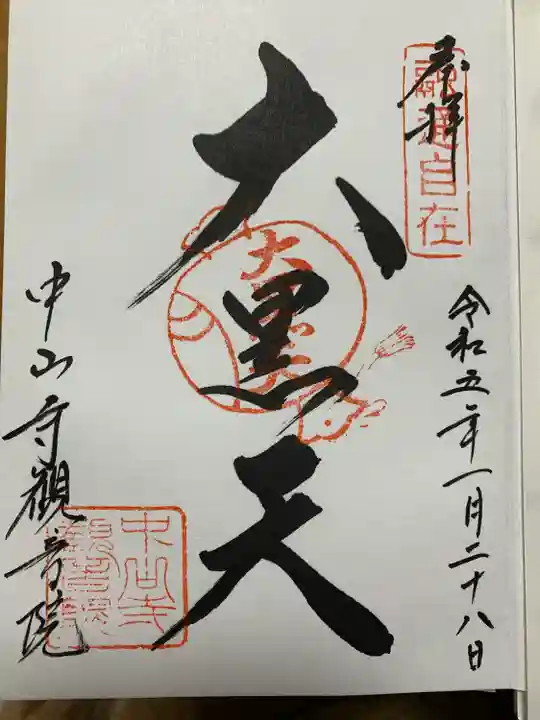 奉拝
融通自在
令和五年一月二十八日
大黒天
大黒天
中山寺觀音院
中山寺
觀音院